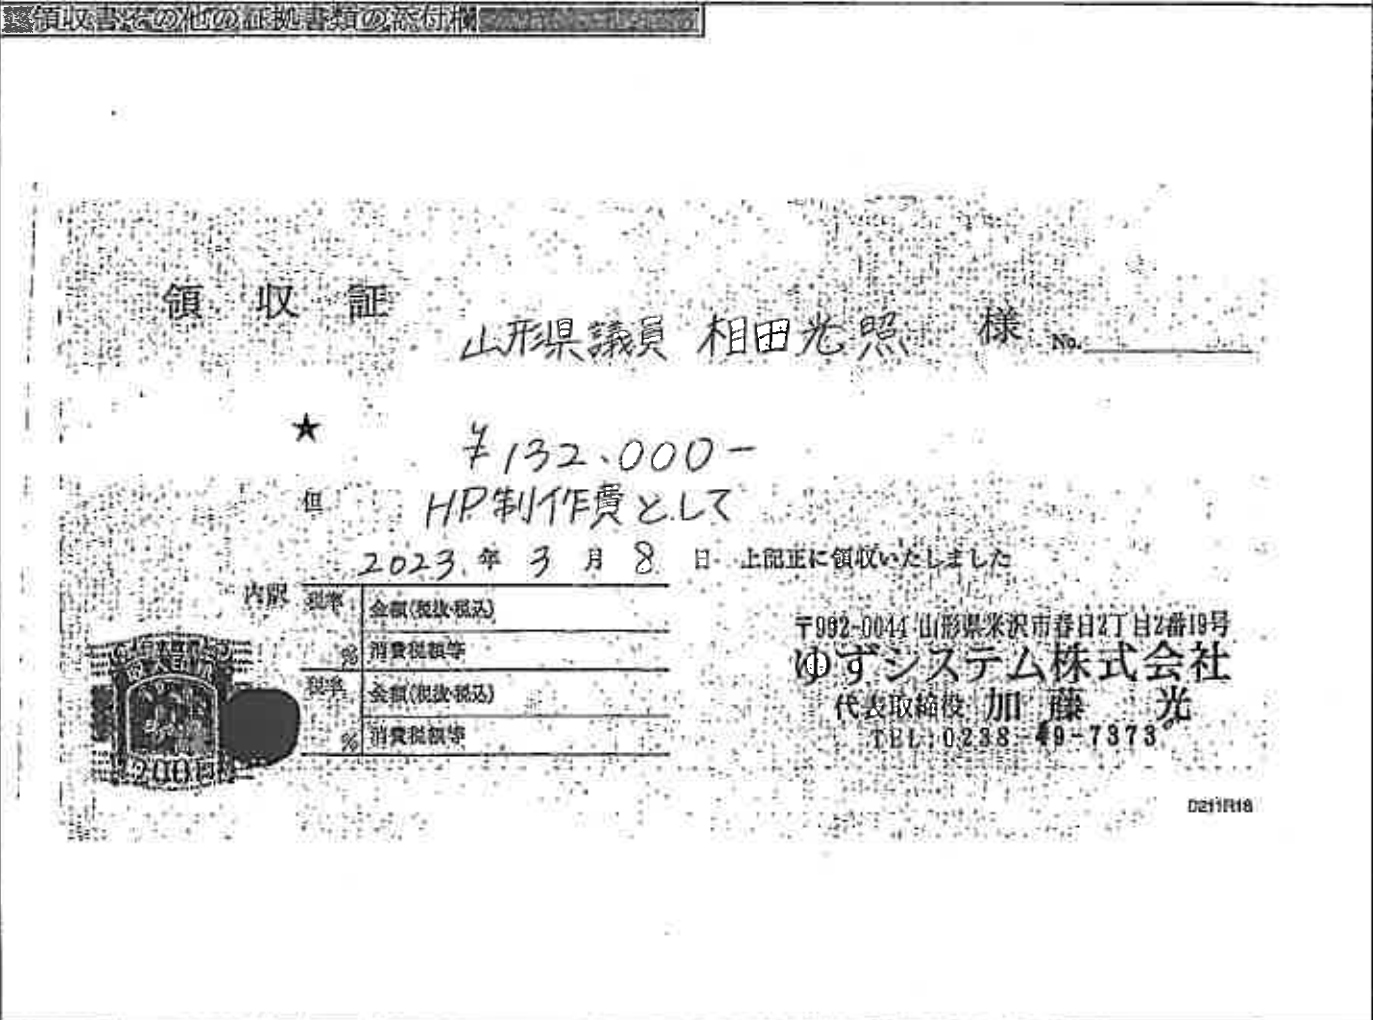 領収書その他の証拠書類の添付欄
領収証
山形県議員 相田光照 様 No.
★ ¥132、000-
但 HP制作費として
2023.年 3月 8日 上記正に領収いたしました
内訳
税率 金額(税抜・税込)
% 消費税額等
税率 金額(税抜・税込)
% 消費税額等
200円
〒992-0044 山形県米沢市春日2丁目2番19号
ゆずシステム株式会社
代表取締役 加藤 光
TEL:0238-49-7373
D211R18